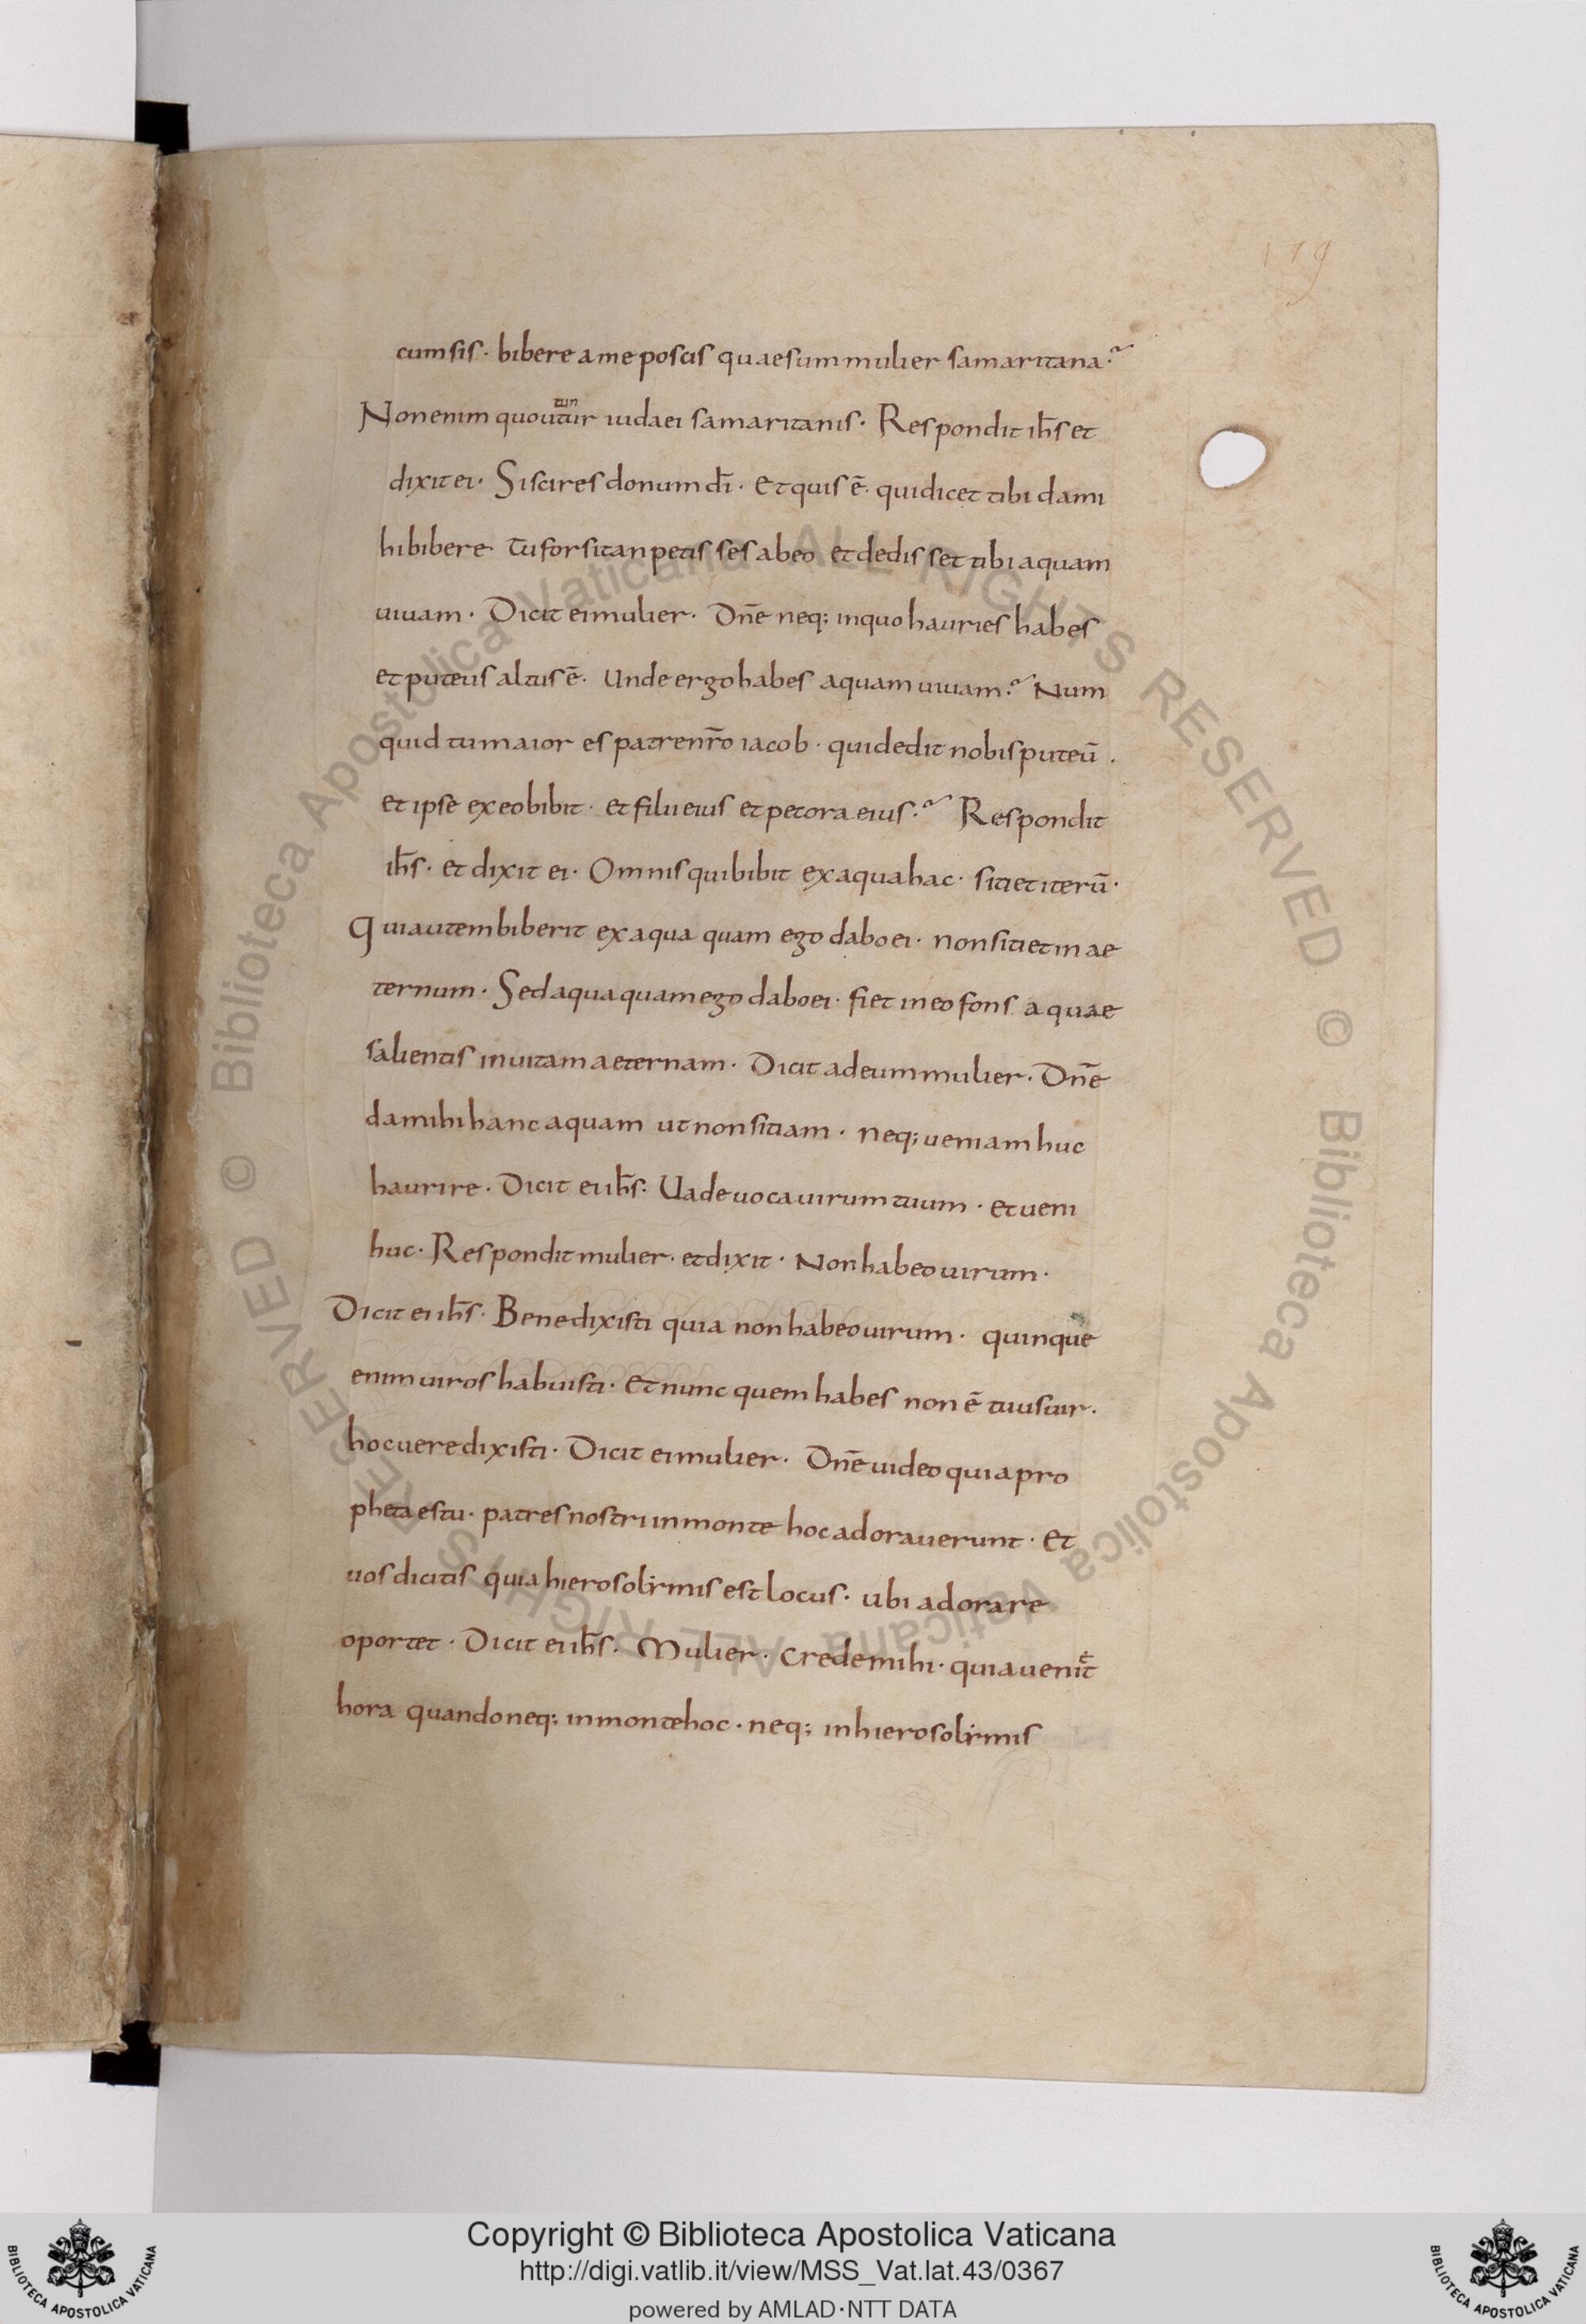 179
cum sis · bibere a me poscis quae sum mulier samaritana ·?
Non enim quoutuir tun iudaei samaritanis · Respondit ih̄s et
dixit ei · Si scires donum dī · Et quis ē · qui dicet tibi da mi
hi bibere Tu forsitan petis ses ab eo et dedis set tibi aquam
uiuam · Dicit ei mulier · Dn̄e neq; in quo hauries habes
et puteus altus ē · Unde ergo habes aquam uiuam ·? Num
quid tu maior es patre nr̄o iacob · qui dedit nobis puteū ·
et ipse ex eo bibit · et filii eius et pecora eius ·? Respondit
ih̄s · et dixit ei · Omnis qui bibit ex aqua hac · sitiet iterū ·
Qui autem biberit ex aqua quam ego dabo ei · non sitiet in ae
ternum · Sed aqua quam ego dabo ei · fiet in eo fons aquae
salientis in uitam aeternam · Dicit ad eum mulier · Dn̄e
da mihi hanc aquam ut non sitiam · neq; ueniam huc
haurire · Dicit ei ih̄s : Uade uoca uirum tuum · et ueni
huc · Respondit mulier · et dixit · Non habeo uirum ·
Dicit ei ih̄s · Bene dixisti quia non habeo uirum · quinque
enim uiros habuisti · Et nunc quem habes non ē tuus uir ·
hoc uere dixisti · Dicit ei mulier · Dn̄e uideo quia pro
pheta es tu · patres nostri in monte hoc adorauerunt · Et
uos dicitis quia hierosolimis est locus · ubi adorare
oportet · Dicit ei ih̄s · Mulier · crede mihi · quia uenit
hora quando neq; in monte hoc · neq; in hierosolimis
© Biblioteca Apostolica Vaticana ALL RIGHTS RESERVED © Biblioteca Apostolica Vaticana ALL RIGHTS RESERVED
Copyright © Biblioteca Apostolica Vaticana
http://digi.vatlib.it/view/MSS_Vat.lat.43/0367
powered by AMLAD·NTT DATA
BIBLIOTECA APOSTOLICA VATICANA
BIBLIOTECA APOSTOLICA VATICANA